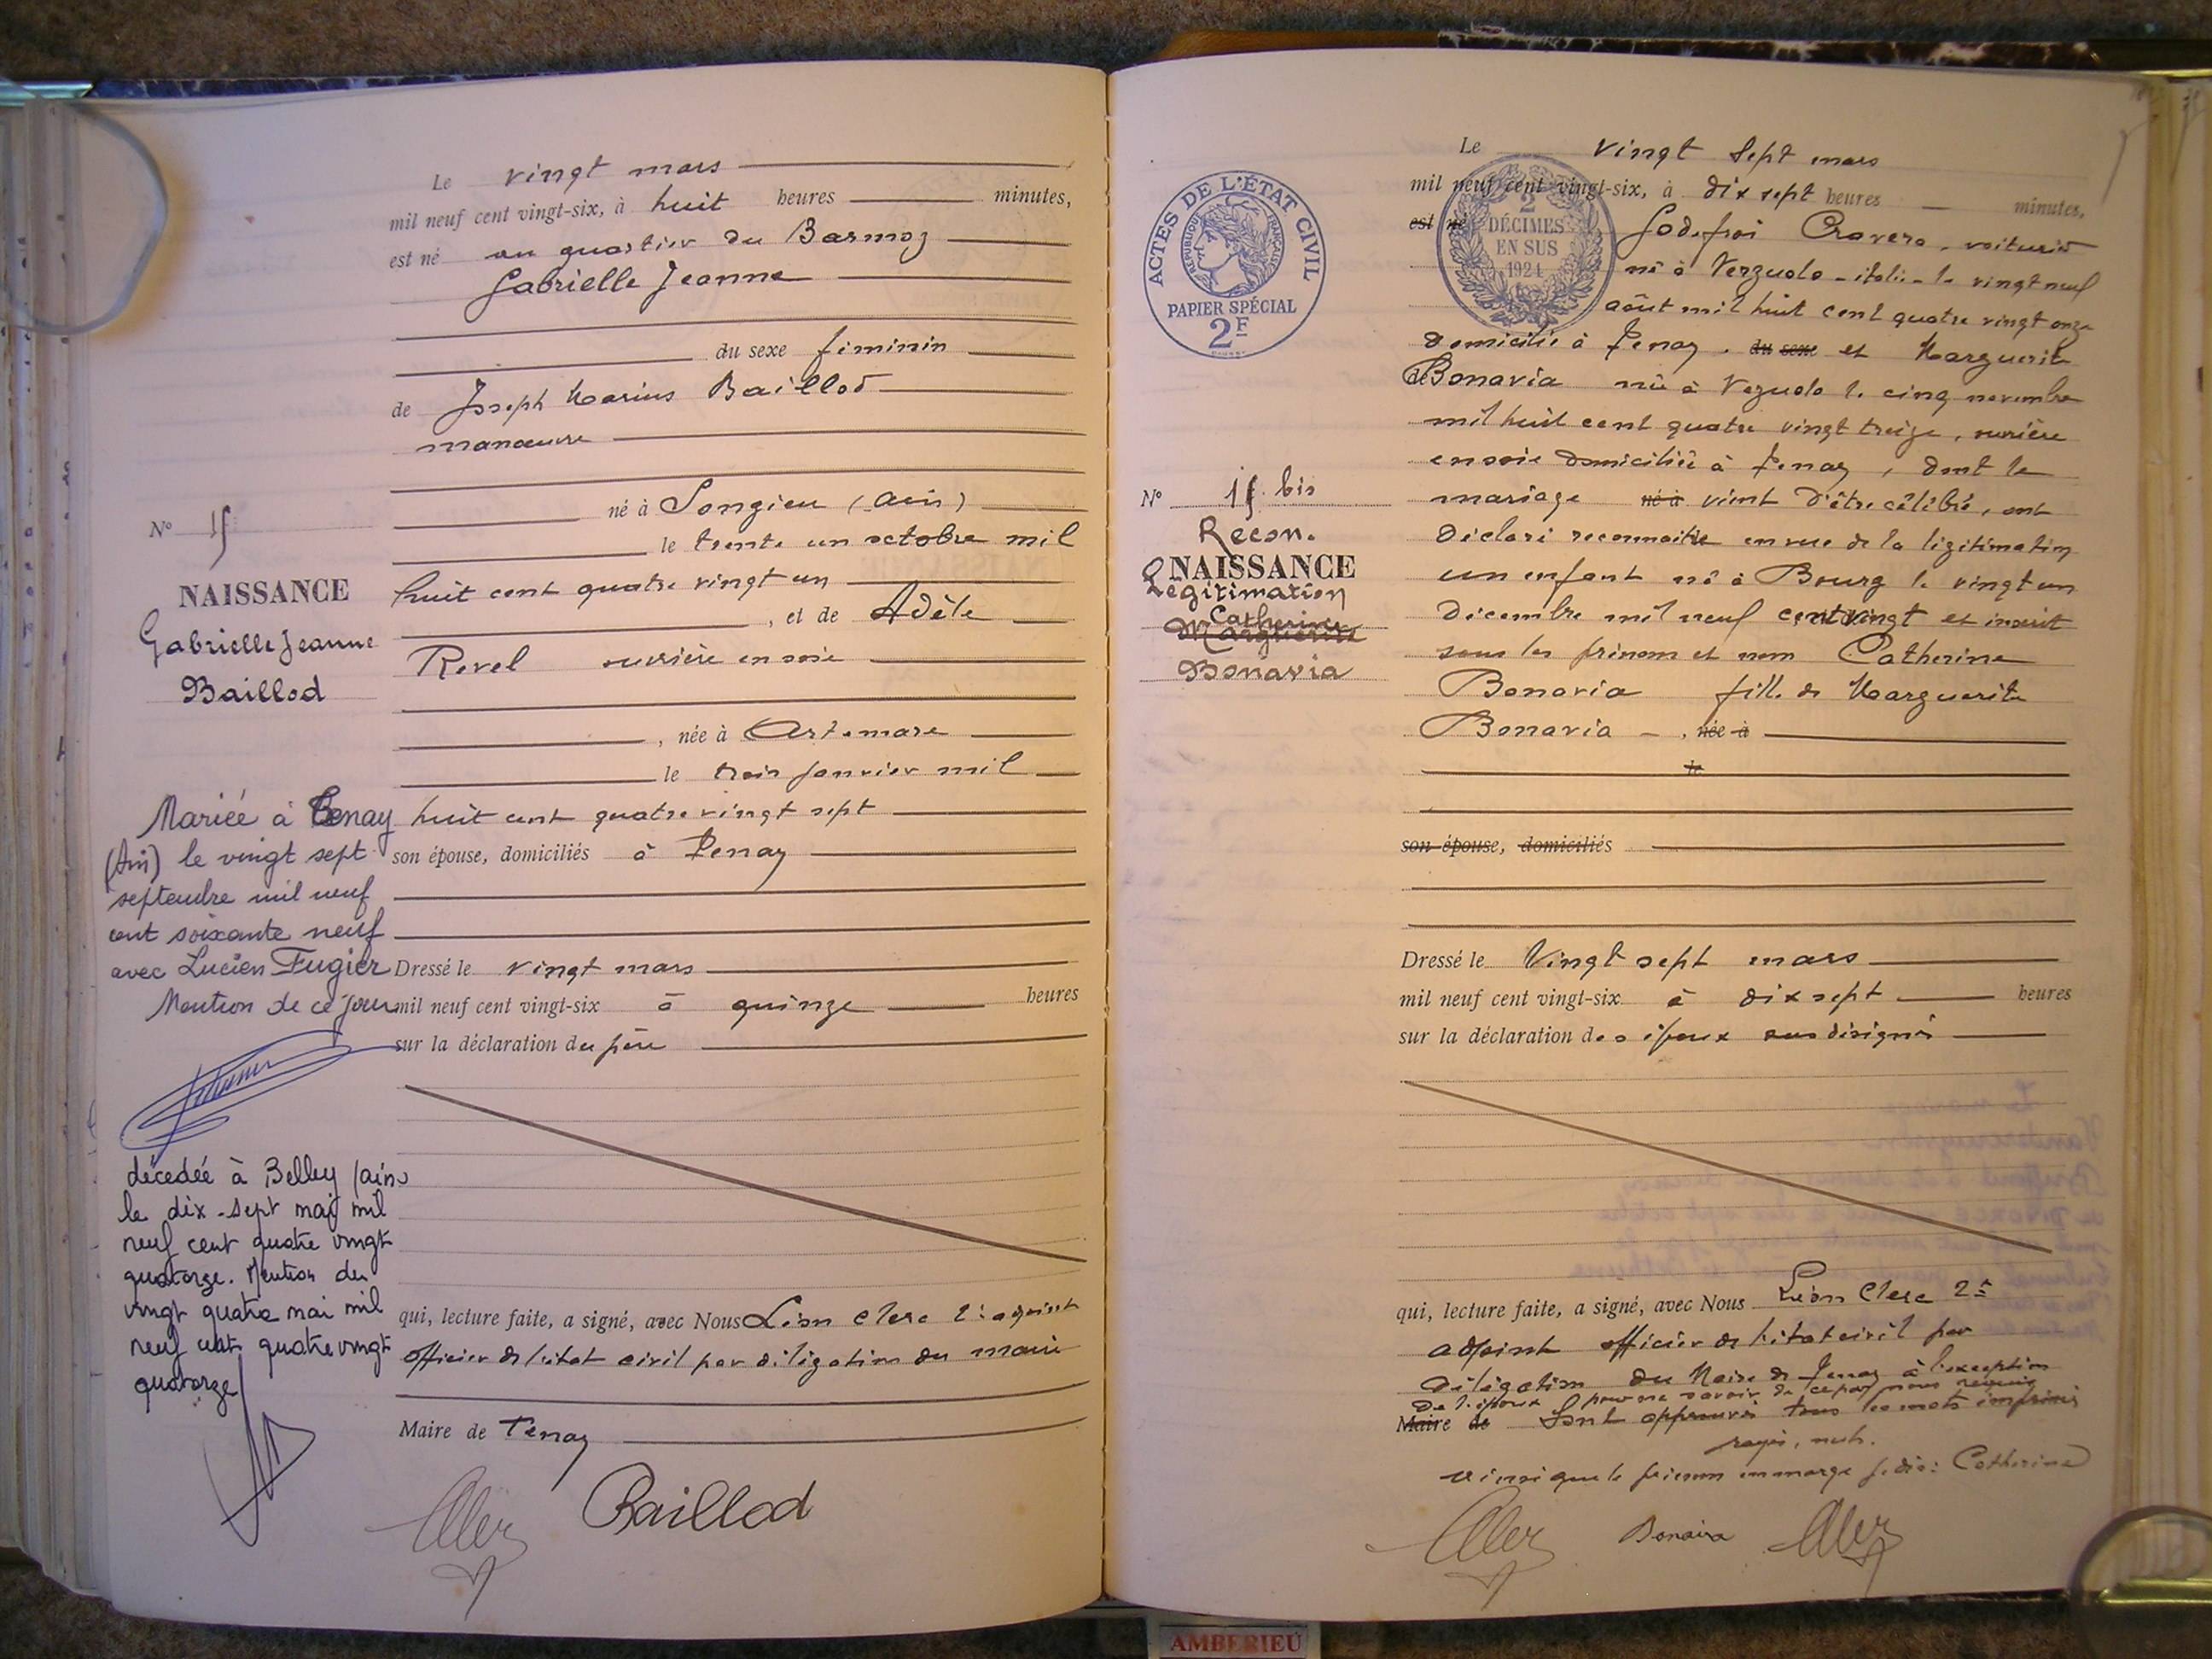 Le vingt mars
mil neuf cent vingt-six, à huit heures minutes,
est né au quartier du Barmoz
Gabrielle Jeanne
du sexe féminin
de Joseph Marius Baillod
manœuvre
né à Songieu (Ain)
le trente un octobre mil
huit cent quatre vingt un
, et de Adèle
Revel ouvrière en soie
, née à Artemare
le trois janvier mil
huit cent quatre vingt sept
son épouse, domiciliés à Tenay
Dressé le vingt mars
mil neuf cent vingt-six à quinze heures
sur la déclaration du père
qui, lecture faite, a signé, avec Nous Léon Clerc 2e adjoint
officier de l'état civil par délégation du maire
Maire de Tenay
Baillod
N° 15
NAISSANCE
Gabrielle Jeanne
Baillod
Mariée à Tenay
(Ain) le vingt sept
septembre mil neuf
cent soixante neuf
avec Lucien Fugier
Mention de ce jour
décedée à Belley (ain)
le dix-sept mai mil
neuf cent quatre vingt
quatorze. Mention du
vingt quatre mai mil
neuf cent quatre vingt
quatorze
ACTES DE L'ÉTAT CIVIL
RÉPUBLIQUE FRANÇAISE
PAPIER SPÉCIAL
2F
2
DÉCIMES
EN SUS
1924
N° 15 bis
Recon.
NAISSANCE
Légitimation
Catherine
Marguerite
Bonavia
Le vingt sept mars
mil neuf cent vingt-six, à dix sept heures — minutes,
est né Godefroi Cravero, voiturier
né à Verzuolo - italie - le vingt neuf
août mil huit cent quatre vingt onze
domicilié à Tenay. du sexe et Marguerite
de Bonavia née à Vezuolo le cinq novembre
mil huit cent quatre vingt treize, ouvrière
en soie domiciliée à Tenay, dont le
mariage né à vient d'être célébré, ont
déclaré reconnaitre en vue de la légitimation
un enfant né à Bourg le vingt un
décembre mil neuf cent vingt et inscrit
sous les prénom et nom Catherine
Bonavia fille de Marguerite
Bonavia - , née à
le
son épouse, domiciliés
Dressé le Vingt sept mars
mil neuf cent vingt-six à dix sept heures
sur la déclaration des époux sus désignés
qui, lecture faite, a signé, avec Nous Léon Clerc 2e
adjoint officier de l'état civil par
délégation du Maire de Tenay à l'exception
de l'époux pour ne savoir de ce par nous requis
Maire de Sont approuvés tous les mots imprimés
rayés, nuls.
ainsi que le prénom en marge Catherine
Bonavia
AMBERIEU